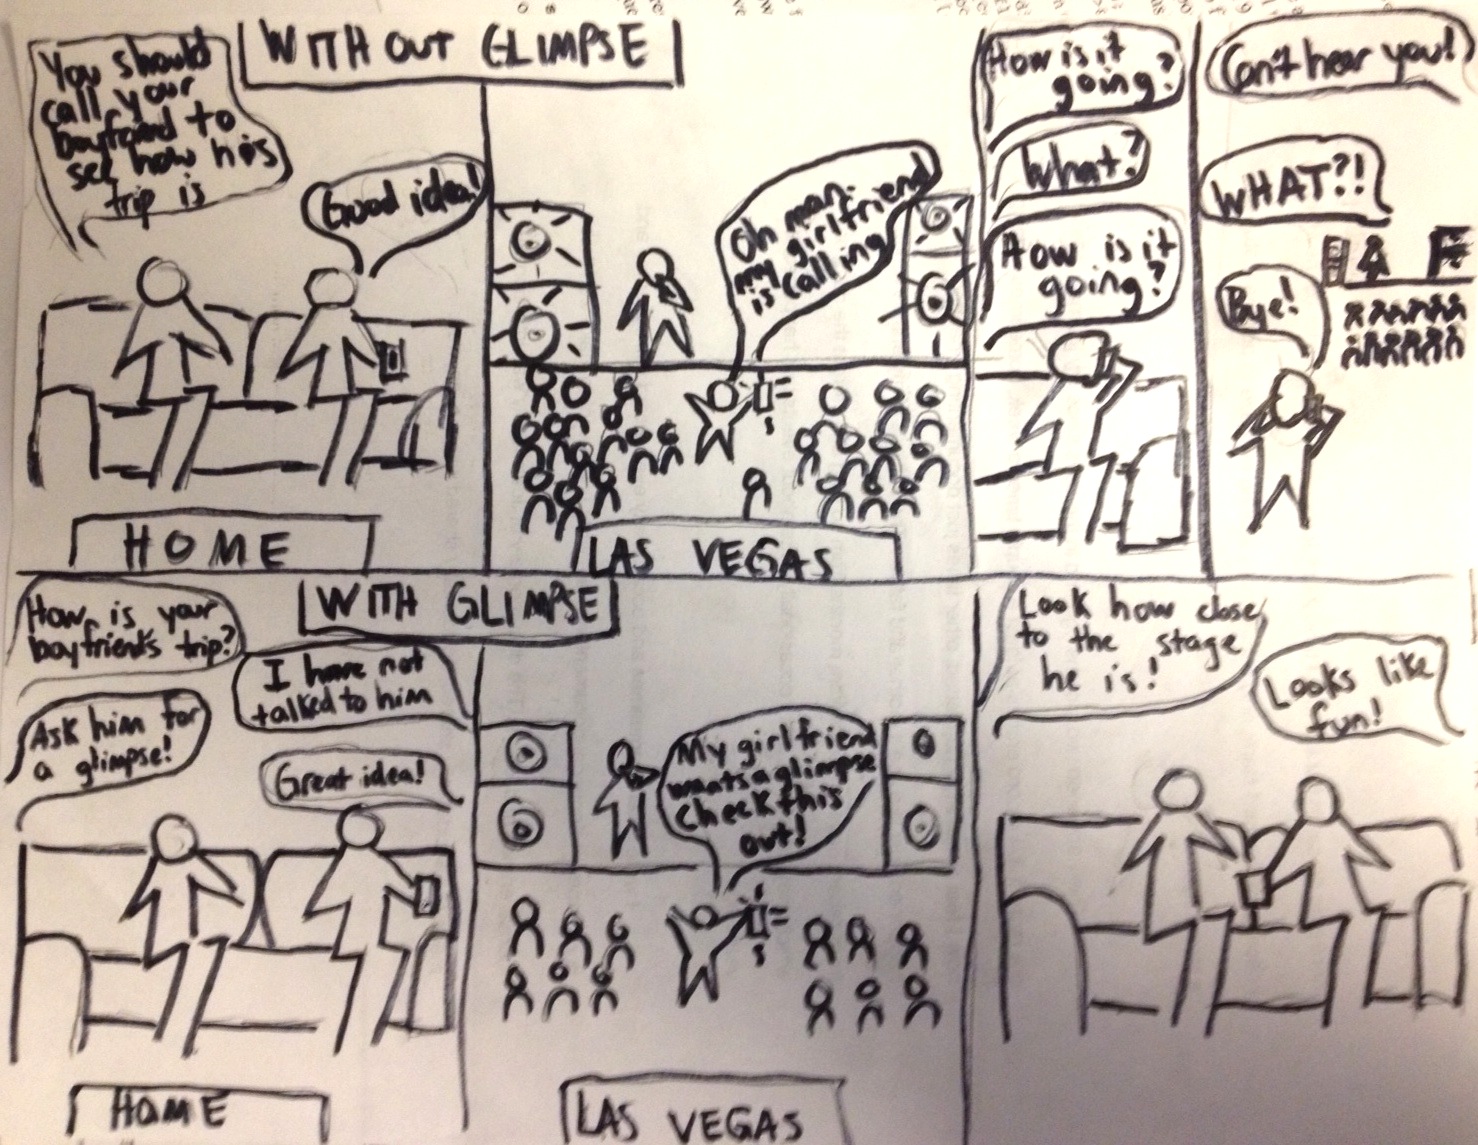 WITHOUT GLIMPSE
You should
call your
boyfriend to
see how his
trip is
Good idea!
HOME
Oh man.
my girlfriend
is calling
LAS VEGAS
How is it
going?
What?
How is it
going?
Can't hear you!
WHAT?!
Bye!
WITH GLIMPSE
How is your
boyfriends trip?
I have not
talked to him
Ask him for
a glimpse!
Great idea!
HOME
My girlfriend
wants a glimpse
check this
out!
LAS VEGAS
Look how close
to the stage
he is!
Looks like
fun!